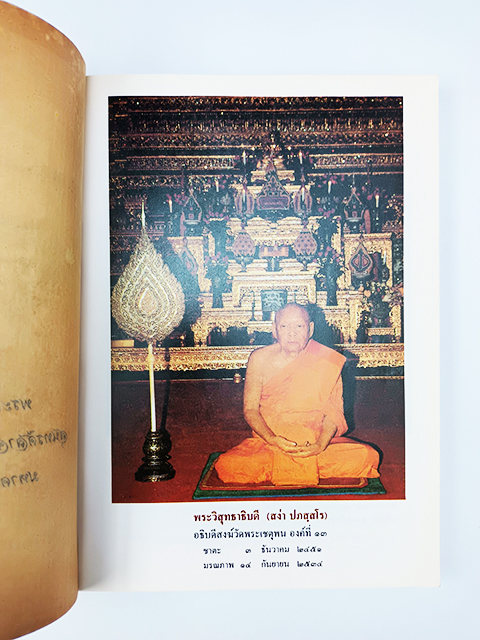 พระวิสุทธาธิบดี (สง่า ปภสฺสโร)
อธิบดีสงฆ์วัดพระเชตุพน องค์ที่ ๑๓
ชาตะ ๓ ธันวาคม ๒๔๕๑
มรณภาพ ๑๔ กันยายน ๒๕๓๔